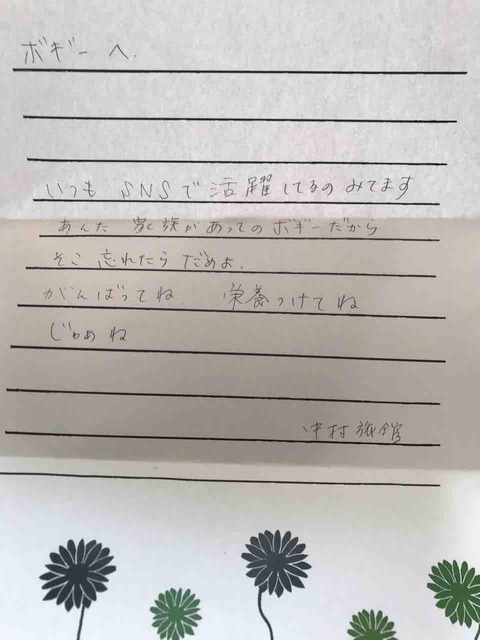 ボギーへ.
いつも SNSで 活躍してるの みてます
あんた 家族があってのボギーだから
そこ 忘れたら だめよ.
がんばってね. 栄養つけてね
じゃあね
中村旅館